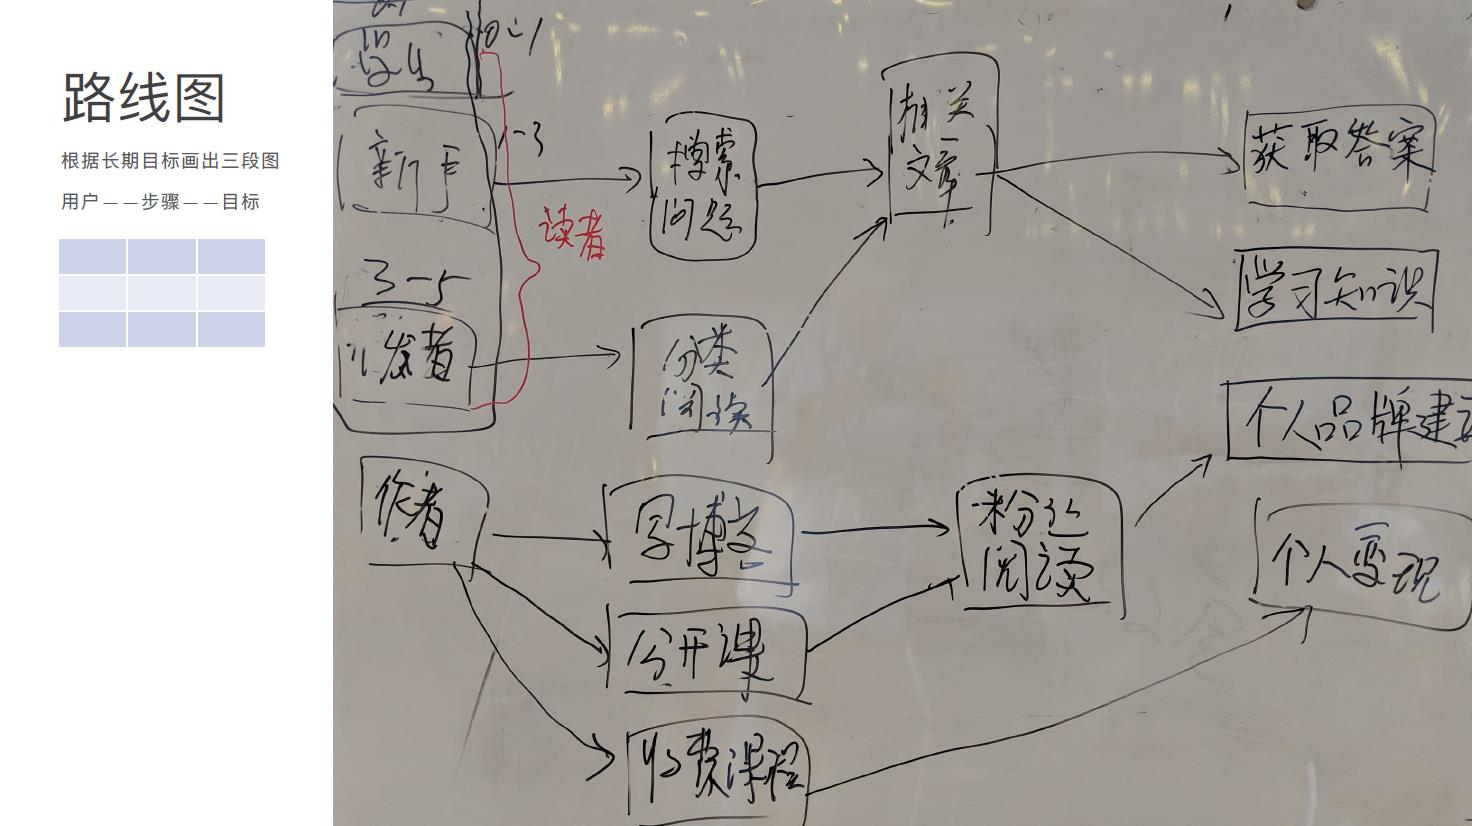 路线图
根据长期目标画出三段图
用户——步骤——目标
0-1
学生
1-3
新手
3-5
开发者
读者
搜索
问题
分类
阅读
相关
文章
获取答案
学习知识
个人品牌建设
作者
写博文
公开课
收费课程
粉丝
阅读
个人变现